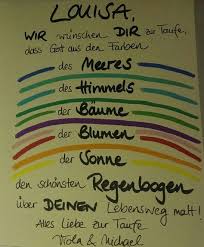 LOUISA,
WIR wünschen DIR zur Taufe,
dass Gott aus den Farben
des Meeres
des Himmels
der Bäume
der Blumen
der Sonne
den schönsten Regenbogen
über DEINEN Lebensweg malt!
Alles Liebe zur Taufe
Viola & Michael